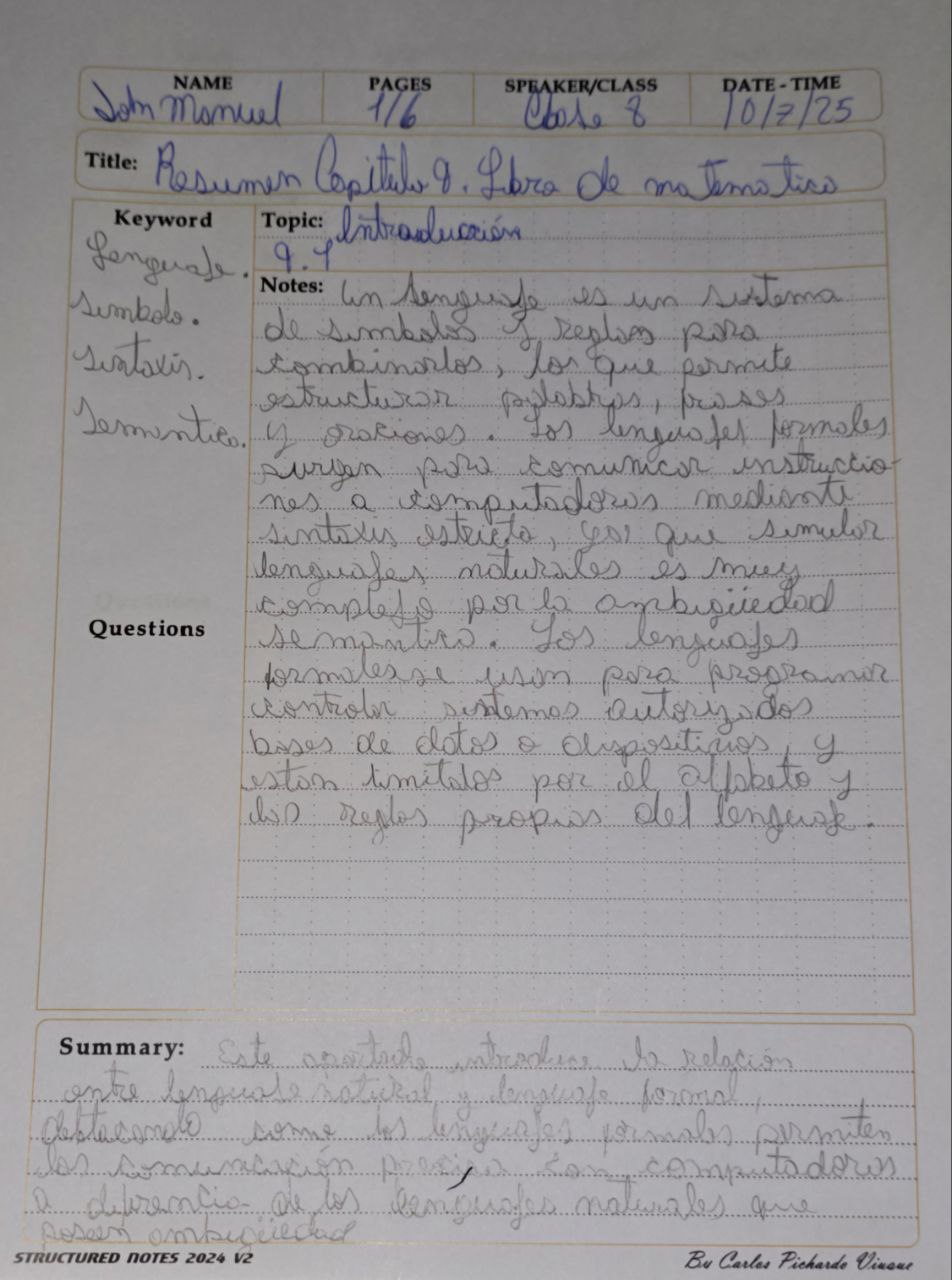 NAME PAGES SPEAKER/CLASS DATE - TIME
John Manuel 1/6 Clase 8 10/7/25
Title: Resumen Capitulo 9. Libro de matematica
Keyword
Lenguaje.
Simbolo.
Sintaxis.
Semantica.
Questions
Topic: Introducción
9.1
Notes: Un lenguaje es un sistema
de simbolos y reglas para
combinarlos, los que permite
estructurar palabras, frases
y oraciones. Los lenguajes formales
surgen para comunicar instruccio-
nes a computadoras mediante
sintaxis estricta, ya que simular
lenguajes naturales es muy
complejo por la ambigüedad
semantica. Los lenguajes
formales se usan para programar
controlar sistemas autorizados
bases de datos o dispositivos, y
estan limitados por el alfabeto y
las reglas propias del lenguaje.
Summary: Este apartado introduce la relación
entre lenguaje natural y lenguaje formal,
destacando como los lenguajes formales permiten
las comunicación precisa con computadoras
a diferencia de los lenguajes naturales que
poseen ambigüedad
STRUCTURED NOTES 2024 V2 By Carlos Pichardo Viuque